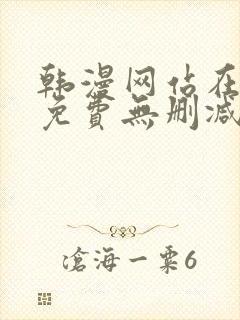 韩漫网站在
免費無删减
滄海一粟6